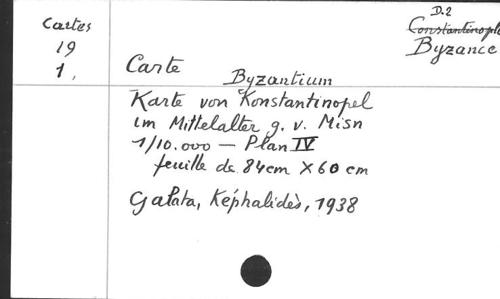 Cartes
19
1,
D.2
Constantinople
Byzance
Carte
Byzantium
Karte von Konstantinopel
im Mittelalter g. v. Misn
1/10.000 — Plan IV
feuille de 84cm X 60 cm
Galata, Képhalidès, 1938